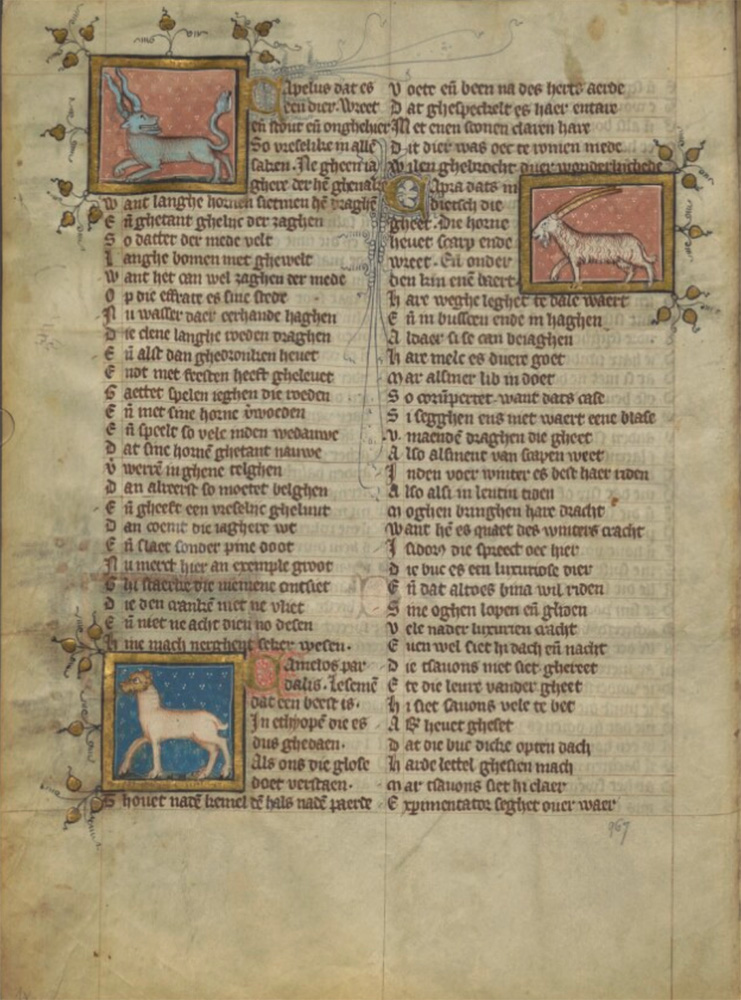 Apelus dat es
een dier. Wreet
eñ stout eñ onghehier
So vreselike in allē
saken. Ne gheen ia
ghere der hē ghenakē
Want langhe hornen sietmen hē draghē
Eñ ghetant ghelijc der zaghen
So datter der mede velt
Langhe bomen met ghewelt
Want het can wel zaghen der mede
Op die effrate es sine stede
Nu wasser daer eerhande haghen
Die clene langhe roeden draghen
Eñ alst dan ghedronken hevet
Ende met feesten heeft ghelevet
Gaettet spelen ieghen die roeden
Eñ met sine horne verwoeden
Eñ speelt so vele inden wedauwe
Dat sine hornē ghetant nauwe
Verwerrē in ghene telghen
Dan alreerst so moetet belghen
Eñ gheeft een vreselijc gheluut
Dan coemt die iaghere wt
Eñ slaet sonder pine doot
Nu merct hier an exemple groot
Ghi staerke die niemene ontsiet
Die den crankē niet ne vliet
Eñ niet ne acht dien no desen
Hine mach nerghent seker wesen.
Camelos par
dalis. Lesemē
dat een beest is.
In ethyopē die es
dus ghedaen.
Als ons die glose
doet verstaen.
Thovet natē kemel dē hals natē paerde
Voete eñ been na des herts aerde
Dat ghespeckelt es haer entare
Met enen sconen claren hare
Dit dier was oec te romen mede
Wilen ghebrocht duer wonderlichede
Capra dats in
dietsch die
gheet. Die horne
hevet scarp ende
wreet. Eñ onder
den kin enē baert.
Hare weghe leghet te dale waert
Eñ in busscen ende in haghen
Aldaer si se can beiaghen
Hare melc es duere goet
Mar alsmer lib in doet
So corūpertet. want dats case
Si segghen ens niet waert eene blase
V. maendē draghen die gheet
Also alsment van scapen weet
Inden voer winter es best haer riden
Also alsi in lentin tiden
Moghen bringhen hare dracht
Want hē es quaet des winters cracht
Isidorꝰ die spreect oec hier
Die buc es een luxuriose dier
Eñ dat altoes bina wil riden
Sine oghen lopen eñ ghoen
Vele nader luxurien cracht
Even wel siet hi dach eñ nacht
Die tsavons niet siet ghereet
Ete die levre vander gheet
Hi siet savons vele te bet
A hevet gheset
Dat die buc dicke opten dach
Harde lettel ghesien mach
Mar tsavons siet hi claer
Expimentator seghet over waer
967